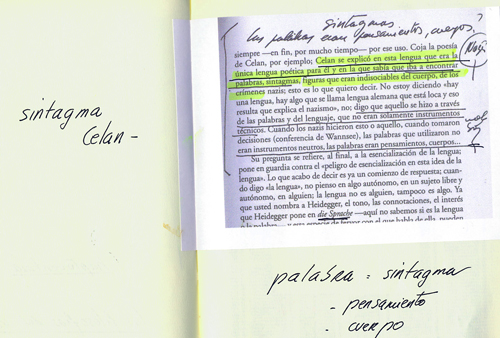 sintagma
Celan -
sintagmas.
las palabras eran pensamientos, cuerpos.
siempre —en fin, por mucho tiempo— por ese uso. Coja la poesía
de Celan, por ejemplo; Celan se explicó en esta lengua que era la
única lengua poética para él y en la que sabía que iba a encontrar
palabras, sintagmas, figuras que eran indisociables del cuerpo, de los
crímenes nazis; esto es lo que quiero decir. No estoy diciendo «hay
una lengua, hay algo que se llama lengua alemana que está loca y eso
resulta que explica el nazismo», no; digo que aquello se hizo a través
de las palabras y del lenguaje, que no eran solamente instrumentos
técnicos. Cuando los nazis hicieron esto o aquello, cuando tomaron
decisiones (conferencia de Wannsee), las palabras que utilizaron no
eran instrumentos neutros, las palabras eran pensamientos, cuerpos...
Su pregunta se refiere, al final, a la esencialización de la lengua;
pone en guardia contra el «peligro de esencialización en esta idea de la
lengua». Lo que acabo de decir es ya un comienzo de respuesta; cuan-
do digo «la lengua», no pienso en algo autónomo, en un sujeto libre y
autónomo, en alguien; la lengua no es alguien, tampoco es algo. Ya
que usted nombra a Heidegger, el tono, las connotaciones, el interés
que Heidegger pone en die Sprache —aquí no sabemos si es la lengua
palabra = sintagma
- pensamiento
- cuerpo